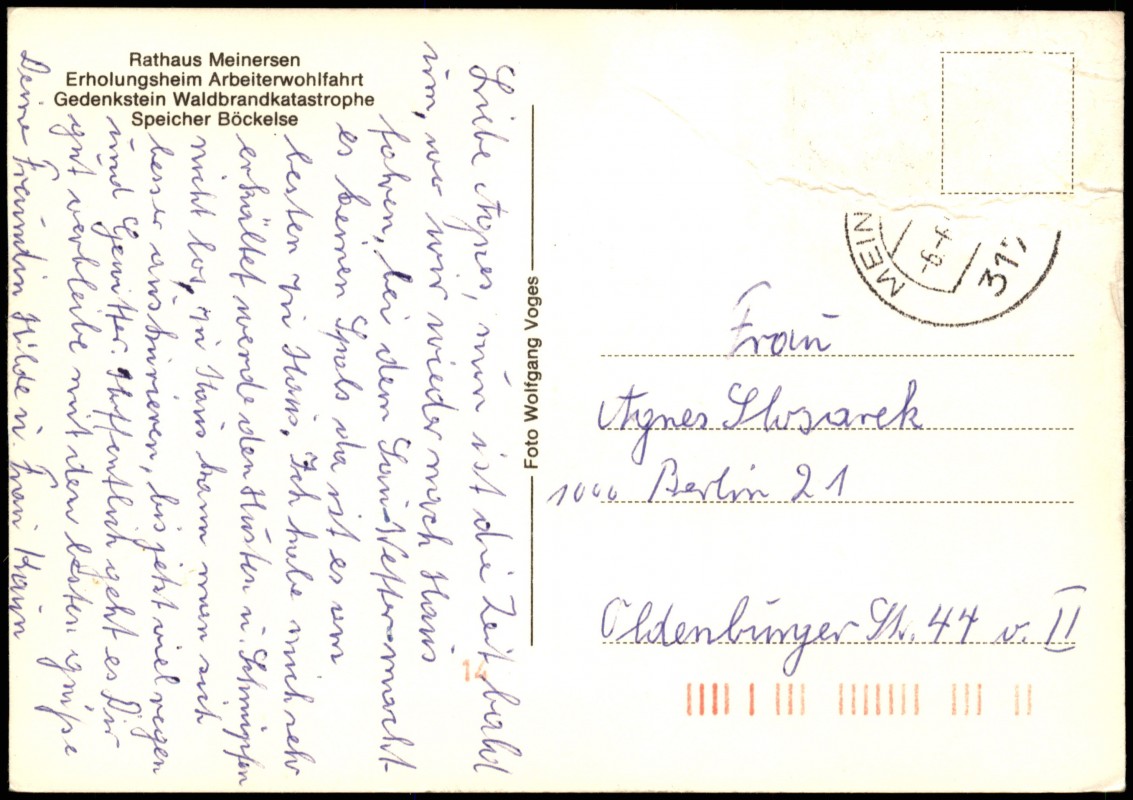 Rathaus Meinersen
Erholungsheim Arbeiterwohlfahrt
Gedenkstein Waldbrandkatastrophe
Speicher Böckelse
Liebe Agnes, nun ist die Zeit bald
um, wo wir wieder nach Haus
fahren, bei dem Sauwetter macht
es keinen Spas da ist es am
besten zu Haus. Ich habe mich sehr
erkältet werde den Husten u. Schnupfen
nicht los, zu Haus kann man sich
besser auskurieren, bis jetzt viel regen
und Gewitter. Hoffentlich geht es Dir
gut verbleibe mit den besten grüße
Deine Freundin Hilde u. Frau Kain
Foto Wolfgang Voges
MEIN
317
Frau
Agnes Slosarek
1000 Berlin 21
Oldenburger Str. 44 v. II
14